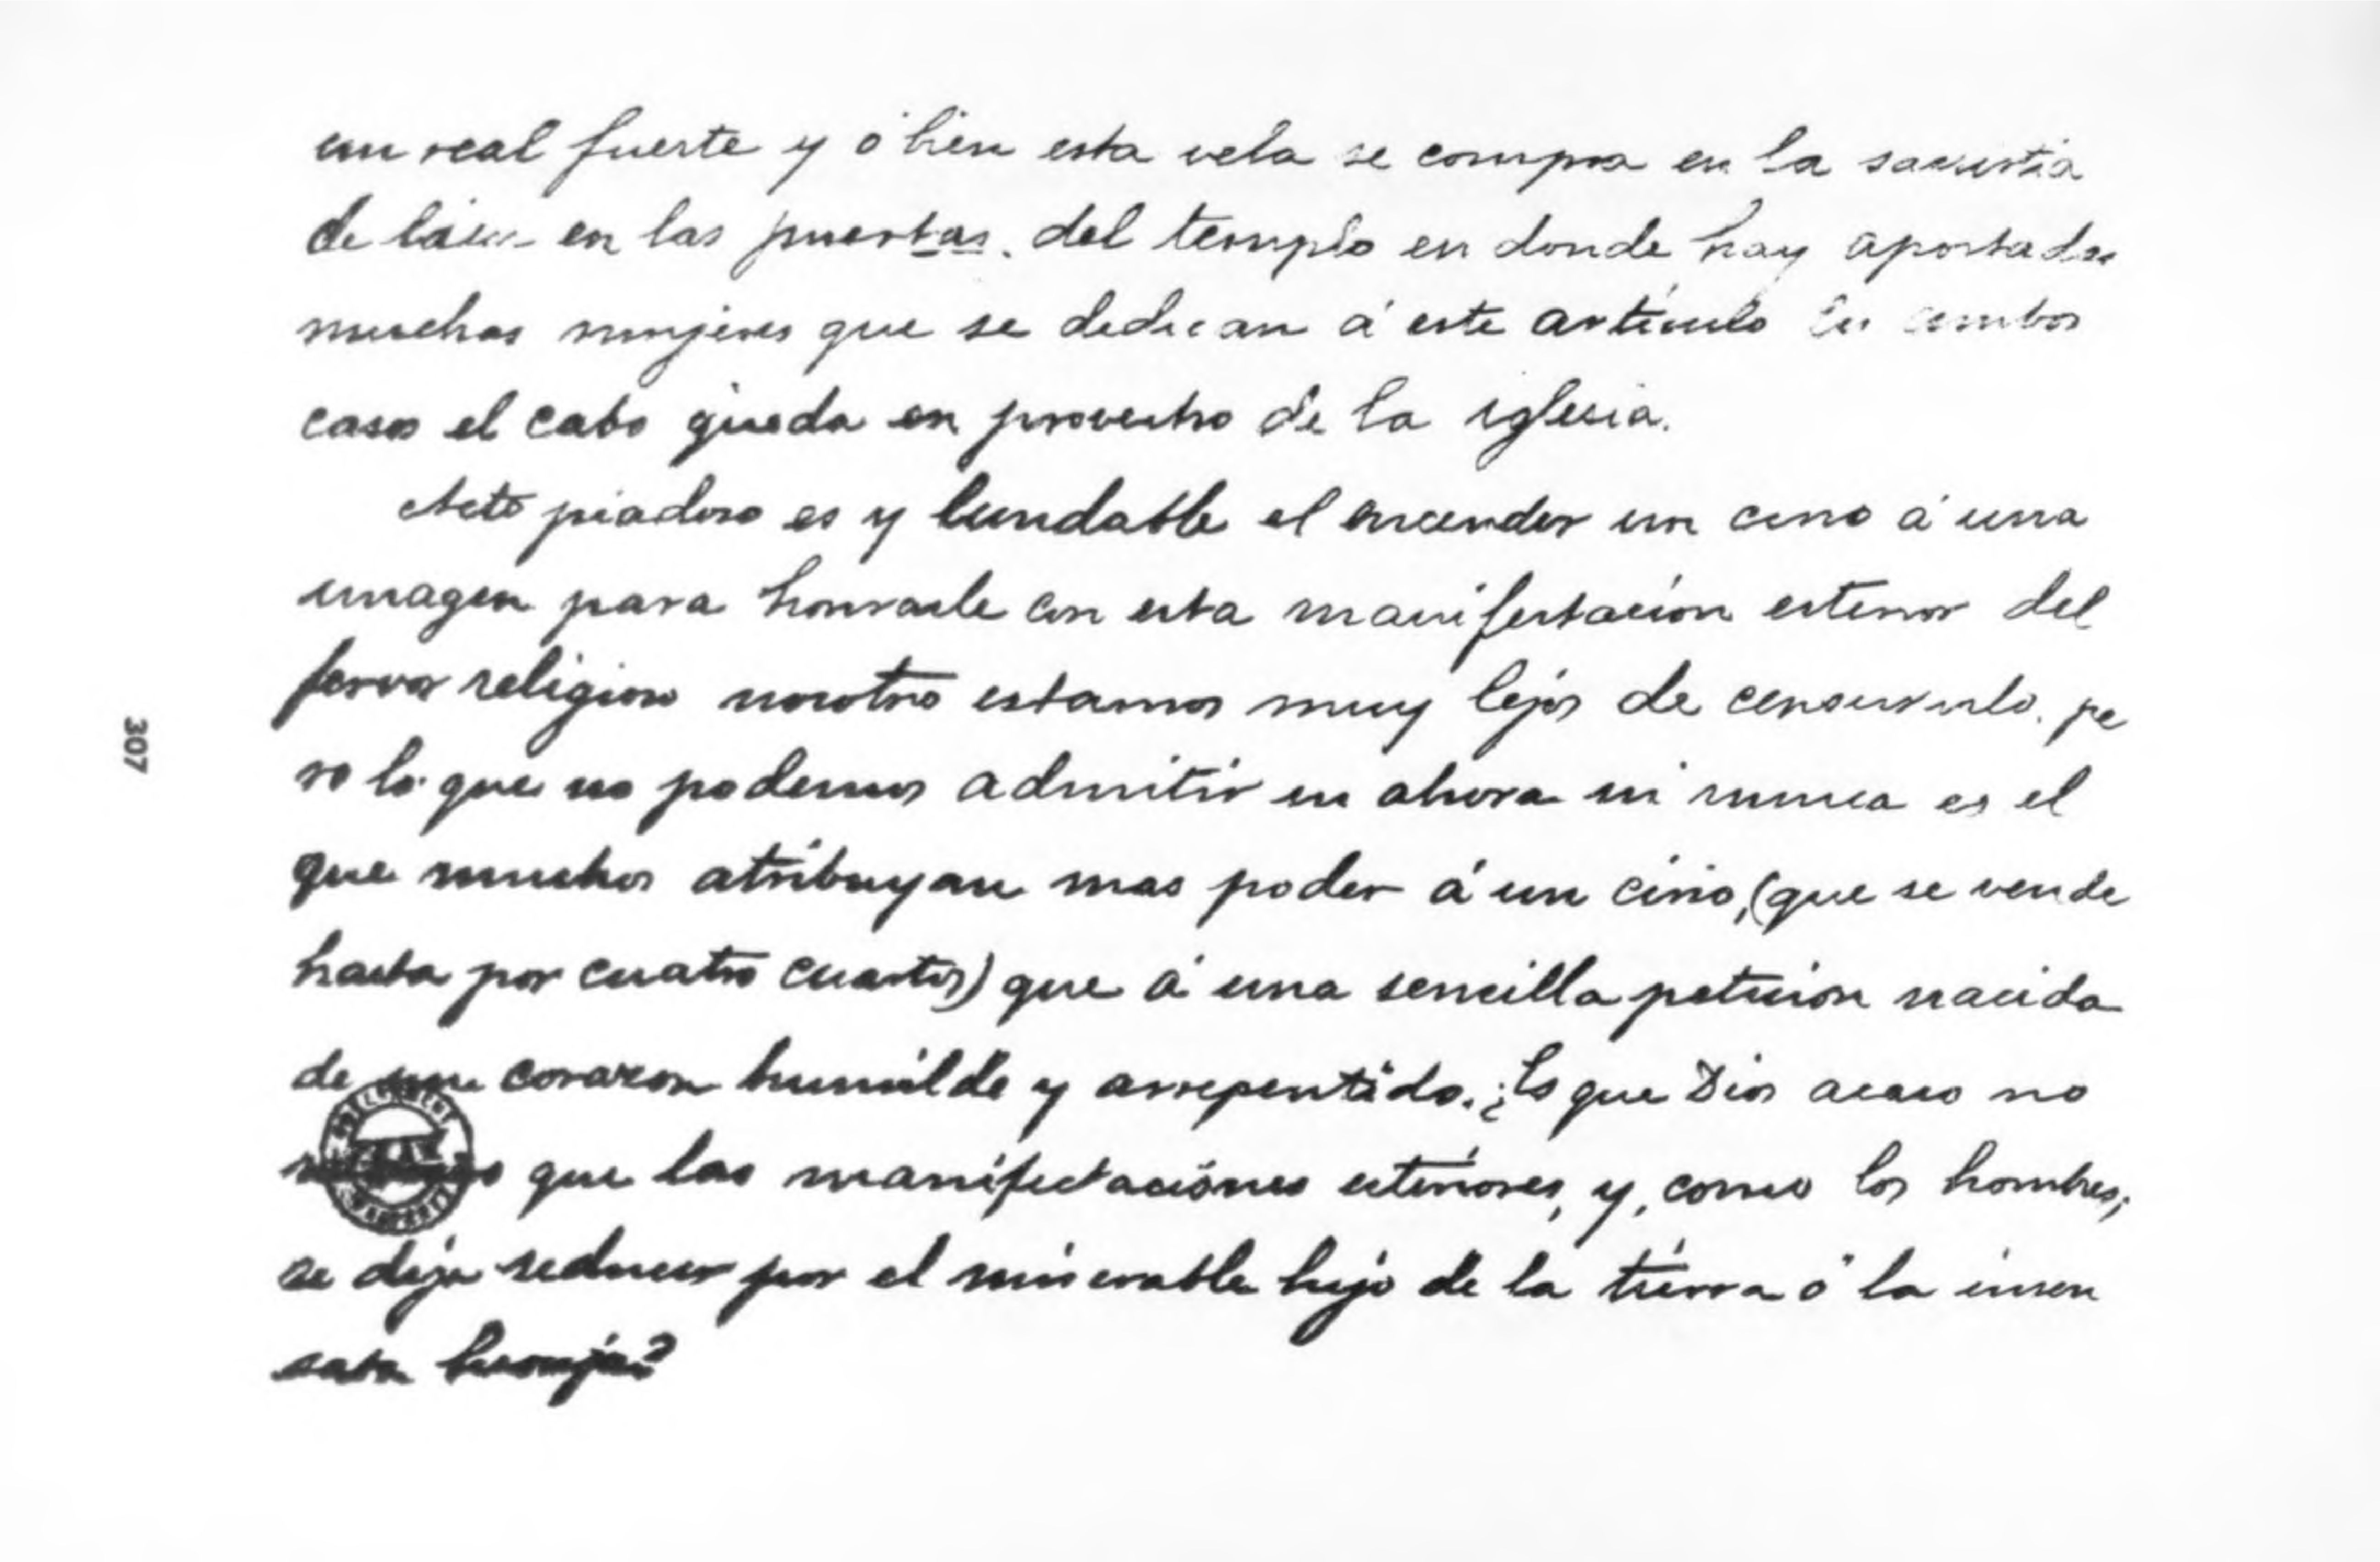 un real fuerte y ó bien esta vela se compra en la sacristia
de en las puertas. del templo en donde hay apostadas
muchas mujeres que se dedican á este artículo En ambos
casos el cabo queda en provecho de la iglesia.
Acto piadoso es y laudable el encender un cirio á una
imagen para honrarle con esta manifestacion esterior del
fervor religioso nosotros estamos muy lejos de censurarlo. pe
ro lo que no podemos admitir ni ahora ni nunca es el
que muchos atribuyan mas poder á un cirio, (que se vende
hasta por cuatro cuartos) que á una sencilla peticion nacida
de un corazon humilde y arrepentido. ¿Es que Dios acaso no
que las manifestaciones esteriores, y, como los hombres,
se deja seducir por el miserable hijo de la tierra ó la insen
sata lisonja?
307